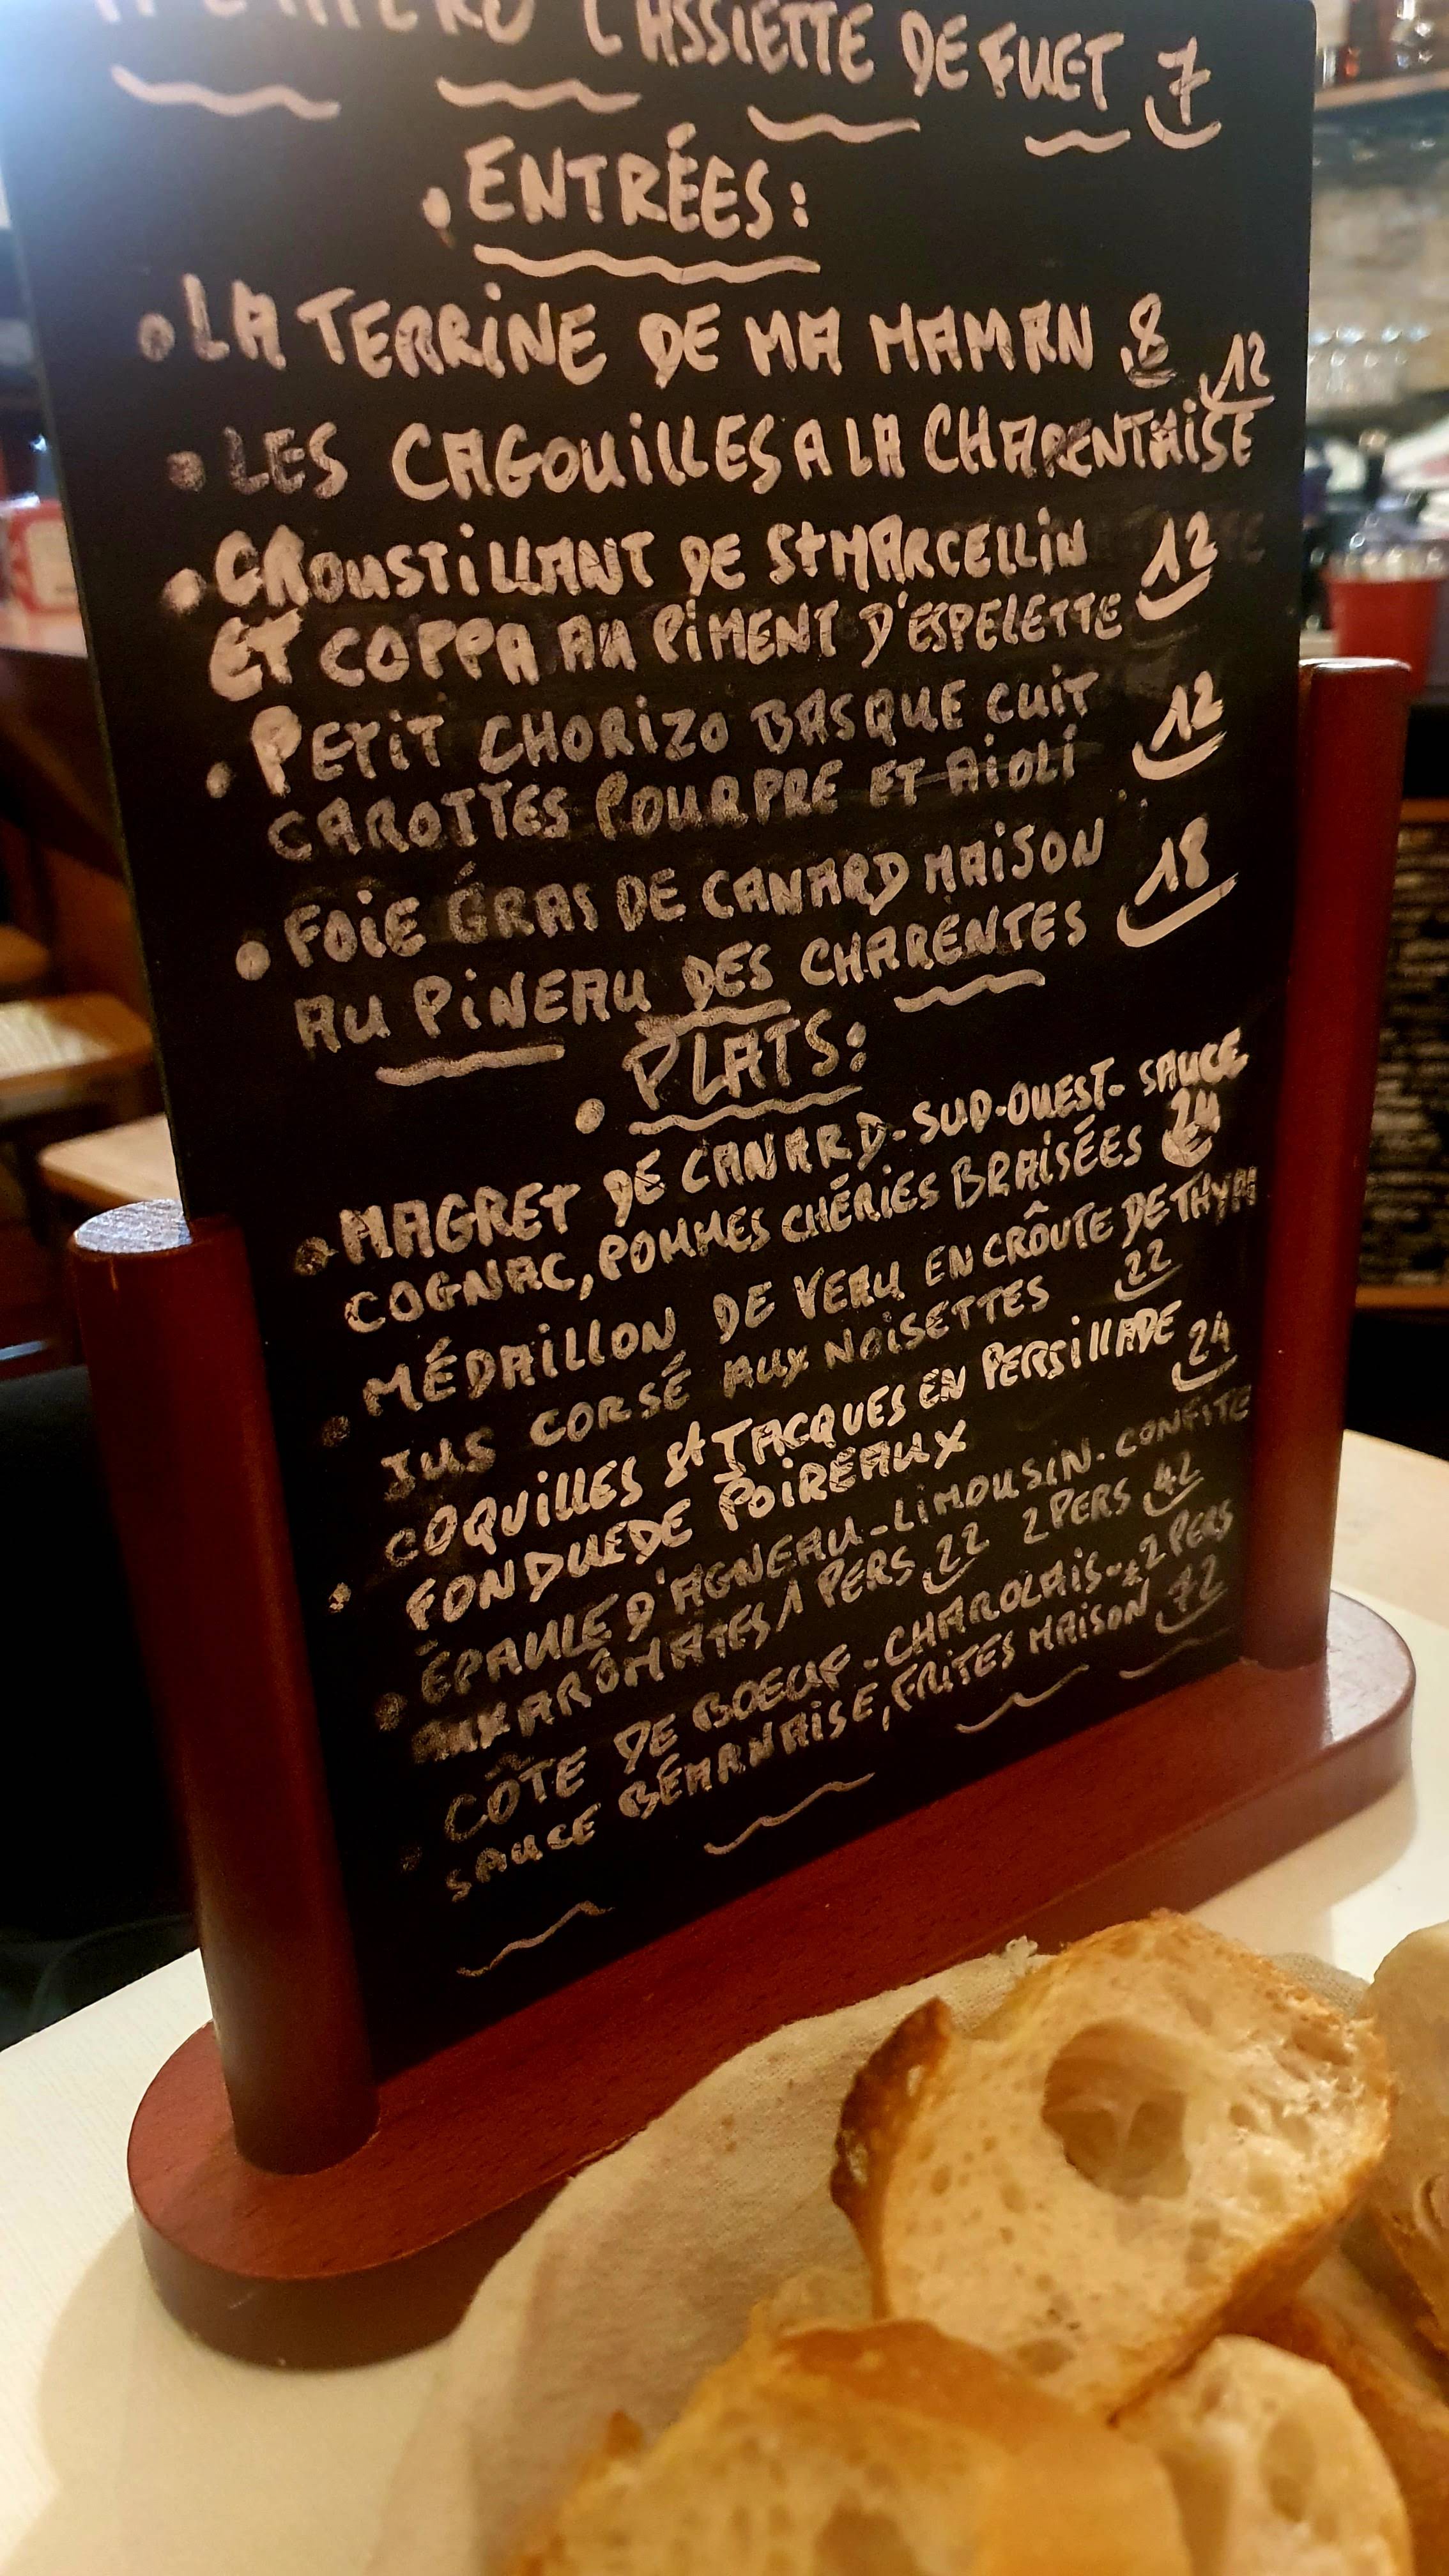 L'ASSIETTE DE FUET 7
• ENTRÉES:
• LA TERRINE DE MA MAMAN 8
12
• LES CAGOUILLES A LA CHARENTAISE
• CROUSTILLANT DE St MARCELLIN 12
ET COPPA AU PIMENT D'ESPELETTE
• PETIT CHORIZO BASQUE CUIT 12
CAROTTES POURPRE ET AIOLI
• FOIE GRAS DE CANARD MAISON 18
AU PINEAU DES CHARENTES
• PLATS:
• MAGRET DE CANARD-SUD-OUEST- SAUCE
COGNAC, POMMES CHÉRIES BRAISÉES
• MÉDAILLON DE VEAU EN CROÛTE DE THYM
JUS CORSÉ AUX NOISETTES 22
• COQUILLES St JACQUES EN PERSILLADE 24
FONDUE DE POIREAUX
• ÉPAULE D'AGNEAU-LIMOUSIN-CONFITE
AUX AROMATES 1 PERS 22 2 PERS 42
• CÔTE DE BOEUF-CHAROLAIS-2 PERS
SAUCE BÉARNAISE, FRITES MAISON 72